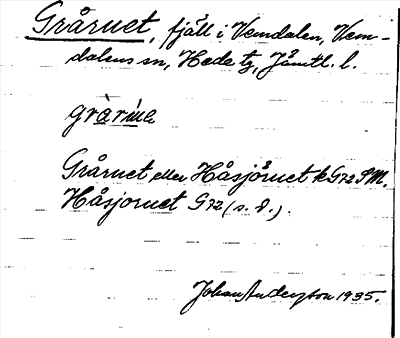 Gråruet, fjäll i Vemdalen, Vem-
dalens sn, Hede tg, Jämtl. l.
Gråruet eller Håsjöruet k G72 SM.
Håsjoruet G72 (s. d.).
Johan Anderzson 1935.